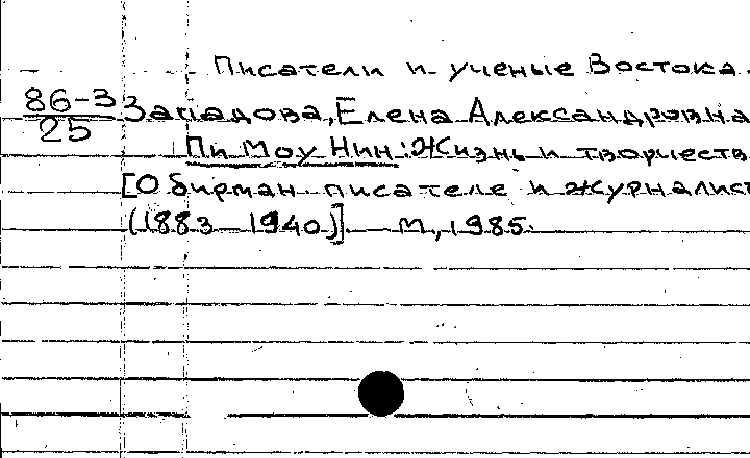 Писатели и ученые Востока.
86-3 Западова, Елена Александровна
25 Пи Моу Нин: Жизнь и творчеств
[О бирман. писателе и журналист
(1883–1940)]. М., 1985.